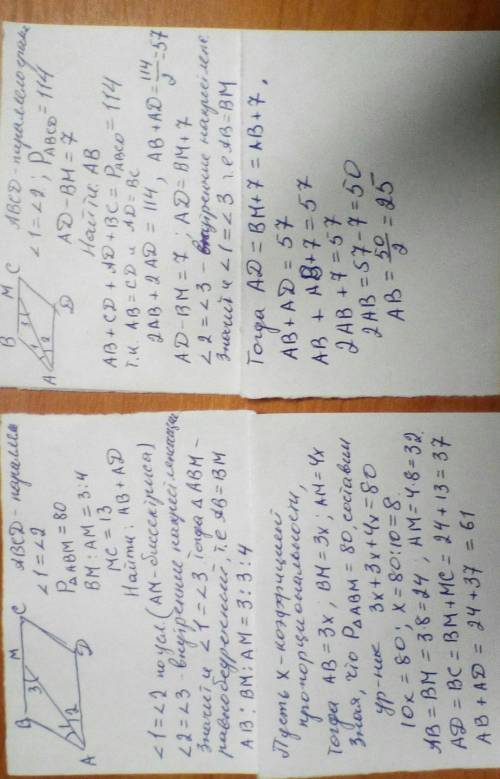 B M C
A D
3
1
2
ABCD-параллелограм
∠1=∠2; P_ABCD=114
AD-BM=7
Найти: AB
AB+CD+AD+BC=P_ABCD=114
т.к. AB=CD и AD=BC
2AB+2AD=114, AB+AD=114/2=57
AD-BM=7; AD=BM+7
∠2=∠3-внутренние накрест леж.
Значит ∠1=∠3 т.е AB=BM
Тогда AD=BM+7=AB+7,
AB+AD=57
AB+AB+7=57
2AB+7=57
2AB=57-7=50
AB=50/2=25
B M C
A D
3
1
2
ABCD-паралле
∠1=∠2
P△ABM=80
BM:AM=3:4
MC=13
Найти: AB+AD
∠1=∠2 по усл. (AM-биссектриса)
∠2=∠3-внутренние накрест лежащие
Значит ∠1=∠3 Тогда △ABM-
равнобедренный, т.е AB=BM
AB:BM:AM=3:3:4
Пусть x-коэффициент
пропорциональности,
Тогда AB=3x, BM=3x, AM=4x
Зная, что P△ABM=80, составим
ур-ние 3x+3x+4x=80
10x=80; x=80:10=8
AB=BM=3·8=24, AM=4·8=32.
AD=BC=BM+MC=24+13=37
AB+AD=24+37=61